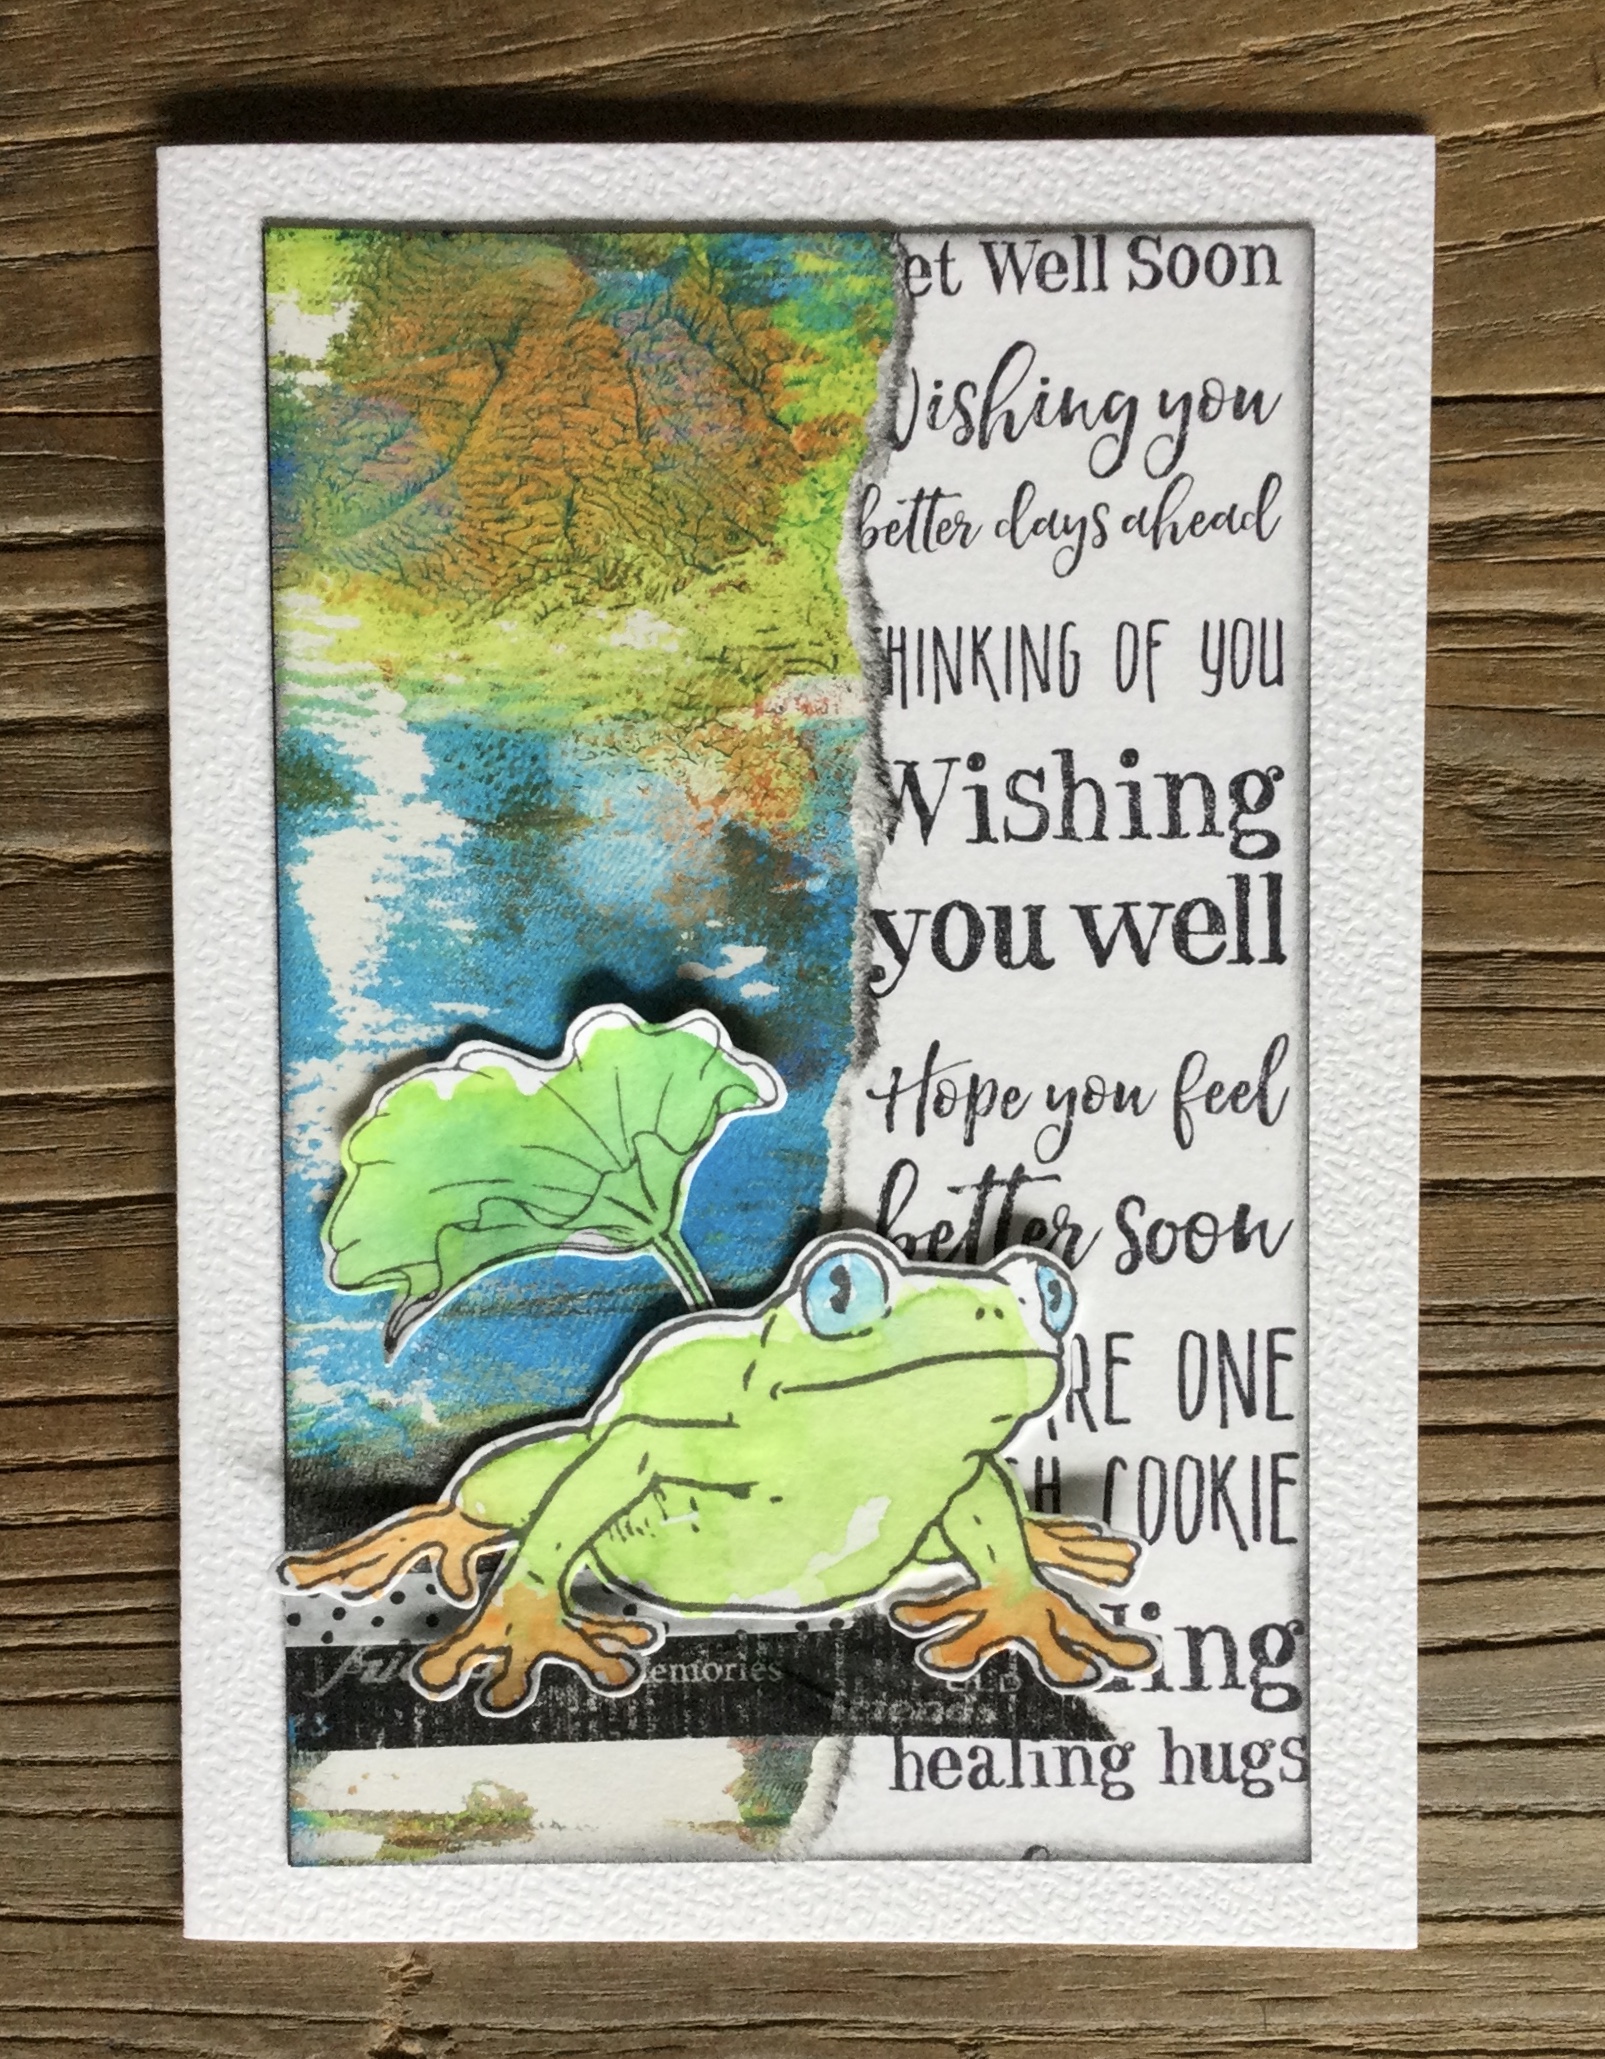 et Well Soon
Wishing you
better days ahead
THINKING OF YOU
Wishing
you well
Hope you feel
better soon
RE ONE
H COOKIE
ling
emories
friends
healing hugs